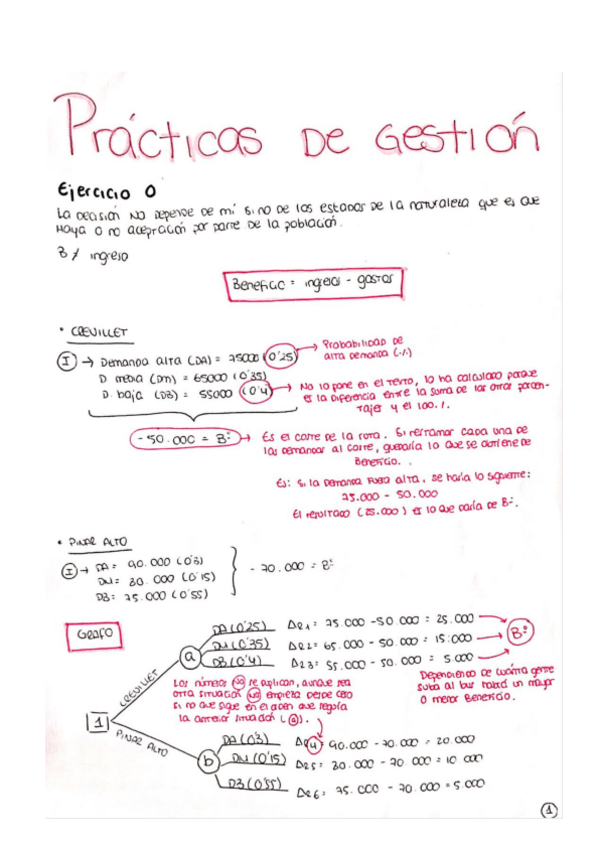 Prácticas DE Gestión
Ejercicio 0
La decisión no depende de mí si no de los estados de la naturaleza que es que
haya o no aceptación por parte de la población.
B ≠ ingreso
Beneficio = ingresos - gastos
• CREVILLET
I → Demanda alta (DA) = 75000 (0'25) → Probabilidad de
alta demanda (·/.)
D media (DM) = 65000 (0'35)
D. baja (DB) = 55000 (0'4) → No lo pone en el texto, lo ha calculado porque
es la diferencia entre la suma de los otros porcen-
tajes y el 100·/.
- 50.000 = Bº → Es el coste de la ruta. Si restamos cada una de
las demandas al coste, quedaría lo que se obtiene de
beneficio.
Ej: si la demanda fuera alta, se haría lo siguiente:
75.000 - 50.000
El resultado (25.000) es lo que daría de Bº.
• PINAR ALTO
I → DA = 90.000 (0'3)
DM = 80.000 (0'15)
DB = 75.000 (0'55)
- 70.000 = Bº
GRAFO
1
CREVILLET
a
DA (0'25) ΔR1 = 75.000 - 50.000 = 25.000
DM (0'35) ΔR2 = 65.000 - 50.000 = 15.000
DB (0'4) ΔR3 = 55.000 - 50.000 = 5.000
Bº
Dependiendo de cuánta gente
suba al bus habrá un mayor
o menor beneficio.
Los números no se replican, aunque sea
otra situación no empieza desde cero
si no que sigue en el orden que seguía
la anterior situación (a).
PINAR ALTO
b
DA (0'3) ΔR4 = 90.000 - 70.000 = 20.000
DM (0'15) ΔR5 = 80.000 - 70.000 = 10.000
DB (0'55) ΔR6 = 75.000 - 70.000 = 5.000
1